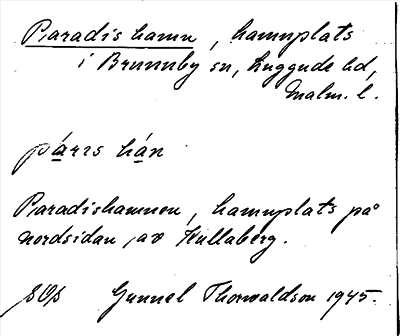 Paradishamn, hamnplats
i Brunnby sn, Luggude hd,
Malm. l.
párís hán
Paradishamnen, hamnplats på
nordsidan av Kullaberg.
Gunnel Thorwaldson 1945.